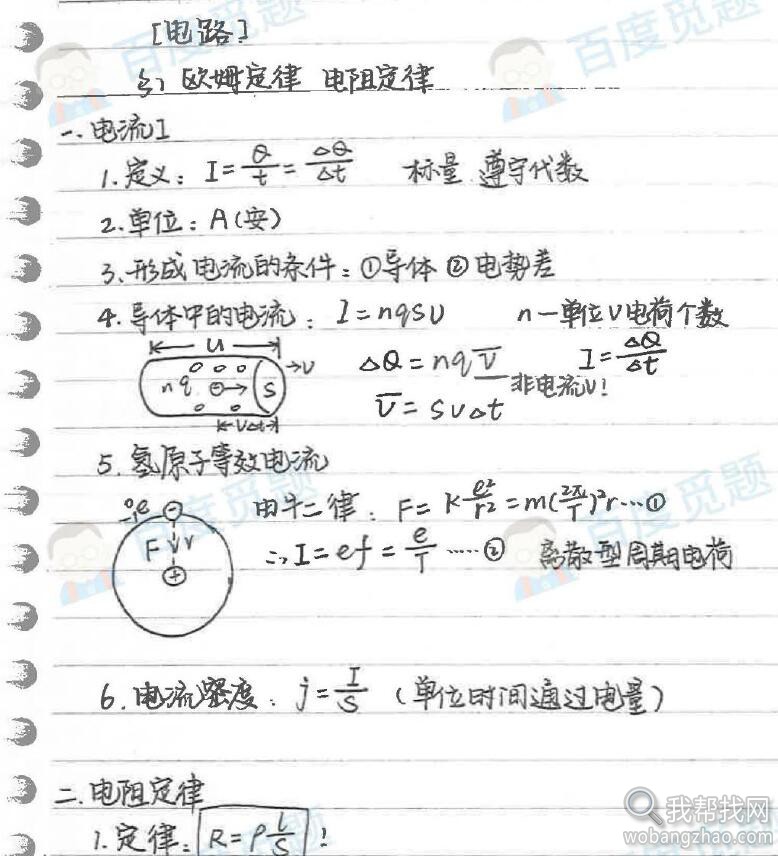 [电路]
§1 欧姆定律 电阻定律
一. 电流I
1. 定义: I = Q/t = ΔQ/Δt 标量 遵守代数
2. 单位: A(安)
3. 形成电流的条件: ①导体 ②电势差
4. 导体中的电流: I = nqSv n—单位V电荷个数
U
n q S v
vΔt
ΔQ = nqV̅ I = ΔQ/Δt
V̅ = SvΔt 非电流v!
5. 氢原子等效电流
由牛二律: F = K e²/r² = m(2π/T)²r …①
∴ I = ef = e/T ……② 离散型周期电荷
⁰₋₁e F V
6. 电流密度: j = I/S (单位时间通过电量)
二. 电阻定律
1. 定律: R = ρ L/S !
百度觅题
百度觅题
百度觅题
百度觅题
我帮找网
wobangzhao.com